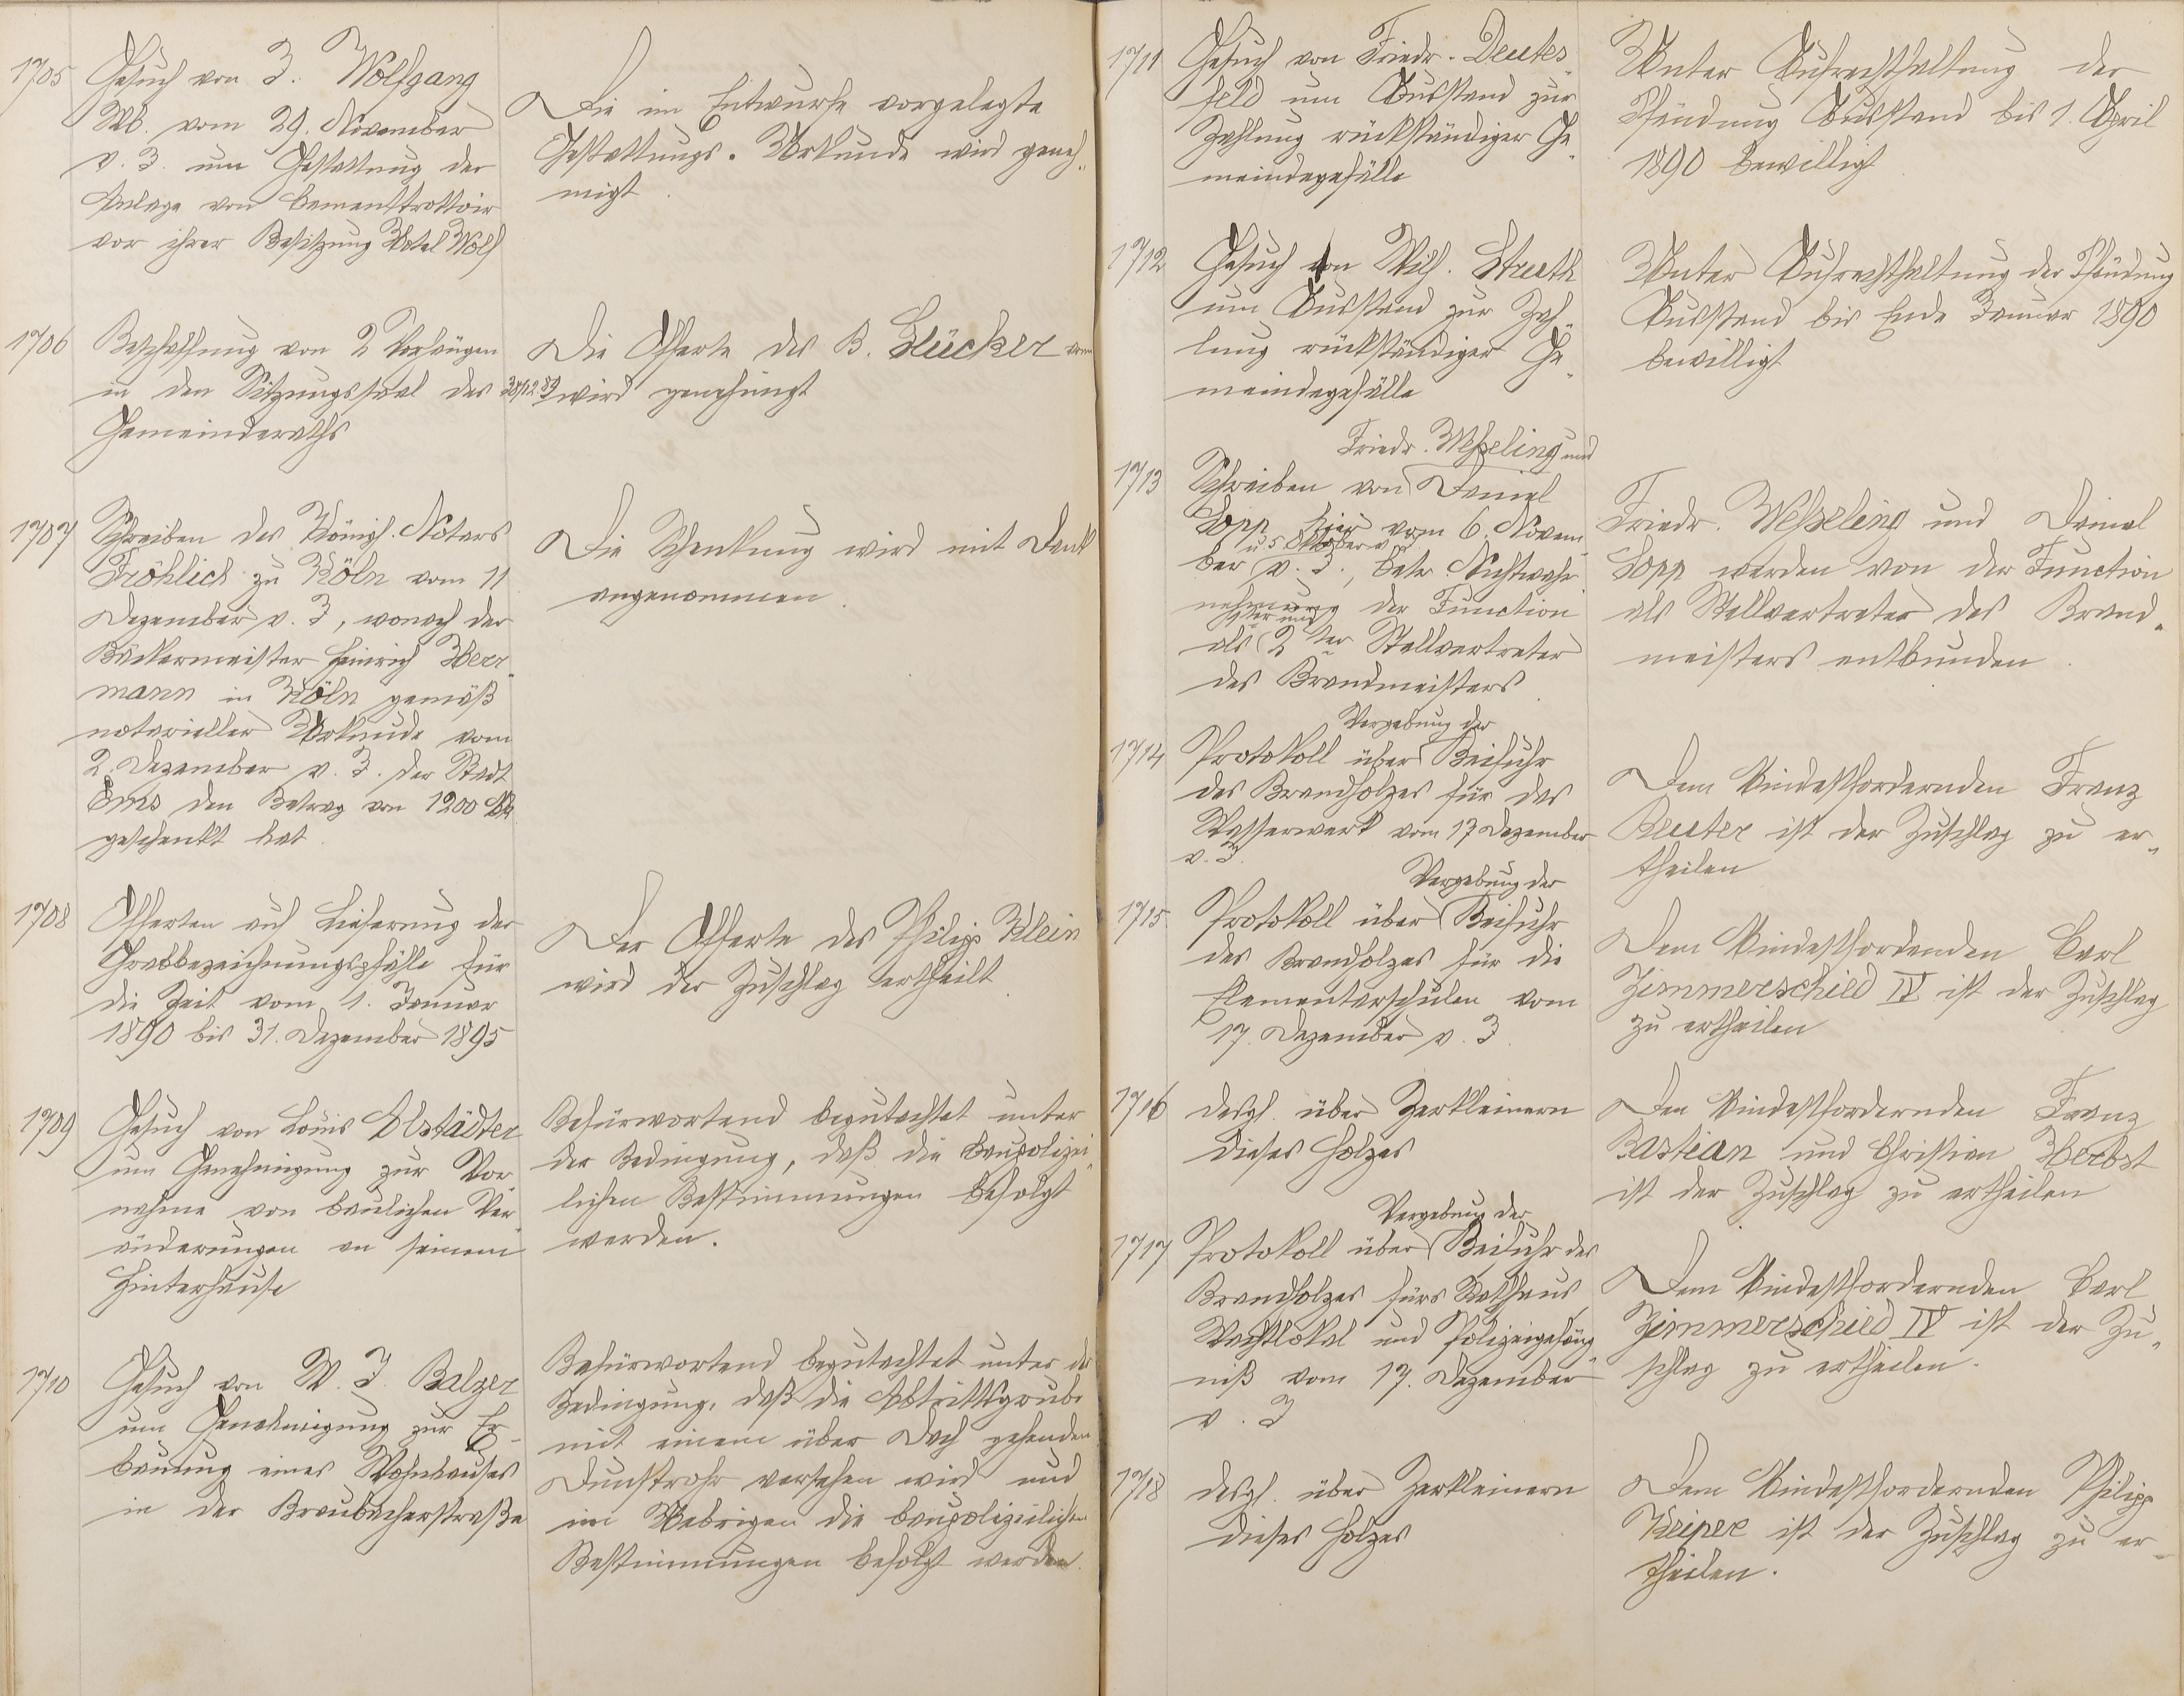 1705
Gesuch von J. Wolfgang
Wb. vom 29. November
v. J. um Gestattung der
Anlage von Cementtrottoir
vor ihrer Besitzung Hotel Wolf
Die im Entwurfe vorgelegte
Gestattungs-Urkunde wird geneh-
migt.
1706
Beschaffung von 2 Vorhängen
in den Sitzungssaal des
Gemeinderaths
Die Offerte des B. Glücker vom
30/12 89 wird genehmigt
1707
Schreiben des Königl. Notars
Fröhlich zu Köln vom 11
Dezember v. J., wonach der
Bäckermeister Heinrich Herr-
mann in Köln gemäß
notarieller Urkunde vom
2. Dezember v. J. der Stadt
Ems den Betrag von 1200 Mk
geschenkt hat.
Die Schenkung wird mit Dank
angenommen.
1708
Offerten auf Lieferung der
Grabbezeichnungspfähle für
die Zeit vom 1. Januar
1890 bis 31. Dezember 1895
Der Offerte des Philipp Klein
wird der Zuschlag ertheilt.
1709
Gesuch von Louis Ebstädter
um Genehmigung zur Vor-
nahme von baulichen Ver-
änderungen an seinem
Hinterhause
Befürwortend begutachtet unter
der Bedingung, daß die baupolizei-
lichen Bestimmungen befolgt
werden.
1710
Gesuch von W. J. Balzer
um Genehmigung zur Er-
bauung eines Wohnhauses
in der Braubacherstraße
Befürwortend begutachtet unter der
Bedingung, daß die Abtrittsgrube
mit einem über Dach gehenden
Dunstrohr versehen wird und
im Uebrigen die baupolizeilichen
Bestimmungen befolgt werden.
1711
Gesuch von Friedr. Deutes-
feld um Ausstand zur
Zahlung rückständiger Ge-
meindegefälle
Unter Aufrechthaltung der
Pfändung Ausstand bis 1. April
1890 bewilligt
1712
Gesuch von Wilh. Struth
um Ausstand zur Zah-
lung rückständiger Ge-
meindegefälle
Unter Aufrechthaltung der Pfändung
Ausstand bis Ende Januar 1890
bewilligt
1713
Friedr. Weßeling und
Schreiben von Daniel
Sopp hier vom 6. Novem-
u 5 Oktober v J
ber v. J., betr. Nichtwahr-
nehmung der Function
1ster und
als 2ter Stellvertreter
des Brandmeisters
Friedr. Weßeling und Daniel
Sopp werden von der Function
als Stellvertreter des Brand-
meisters entbunden.
1714
Vergebung der
Protokoll über Beifuhr
des Brandholzes für das
Wasserwerk vom 17 Dezember
v. J.
Dem Mindestfordernden Franz
Reuter ist der Zuschlag zu er-
theilen
1715
Vergebung der
Protokoll über Beifuhr
des Brandholzes für die
Elementarschulen vom
17. Dezember v. J.
Dem Mindestfordenden Carl
Zimmerschied IV ist der Zuschlag
zu ertheilen
1716
desgl. über Zerkleinern
dieses Holzes
Den Mindestfordernden Franz
Bastian und Christian Herbst
ist der Zuschlag zu ertheilen
1717
Vergebung der
Protokoll über Beifuhr des
Brandholzes fürs Rathaus,
Wachtlokal und Polizeigefäng-
niß vom 17. Dezember
v. J
Dem Mindestfordernden Carl
Zimmerschied IV ist der Zu-
schlag zu ertheilen.
1718
desgl. über Zerkleinern
dieses Holzes
Dem Mindestfordernden Philipp
Keiper ist der Zuschlag zu er-
theilen.